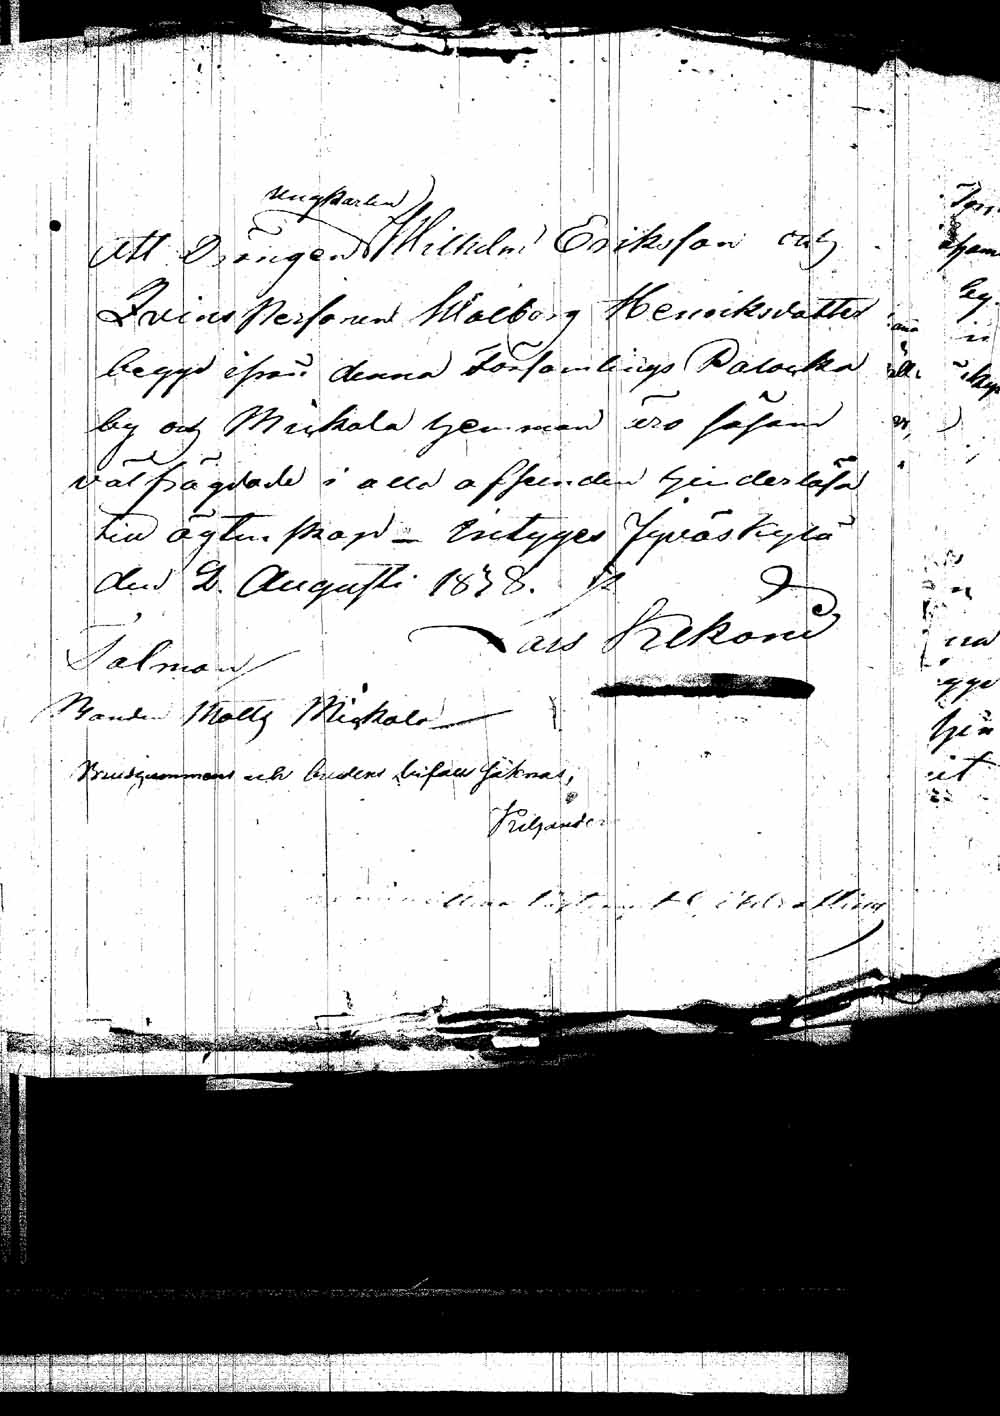 ungkarlen
Att Drängen Wilhelm Eriksson och
Qvins Personen Walborg Henriksdotter
begge ifrån denna Församlings Palocka
by och Mickala hemman äro såsom
välfrägdade i alla afseenden hinderlösa
till ägtenskap – Intygas Jyväskylä
den 2. Augusti 1838.
Lars Kekoni
Talman
Bonden Matts Mickala
Brudgummens och brudens bifall saknas,
Kiljander